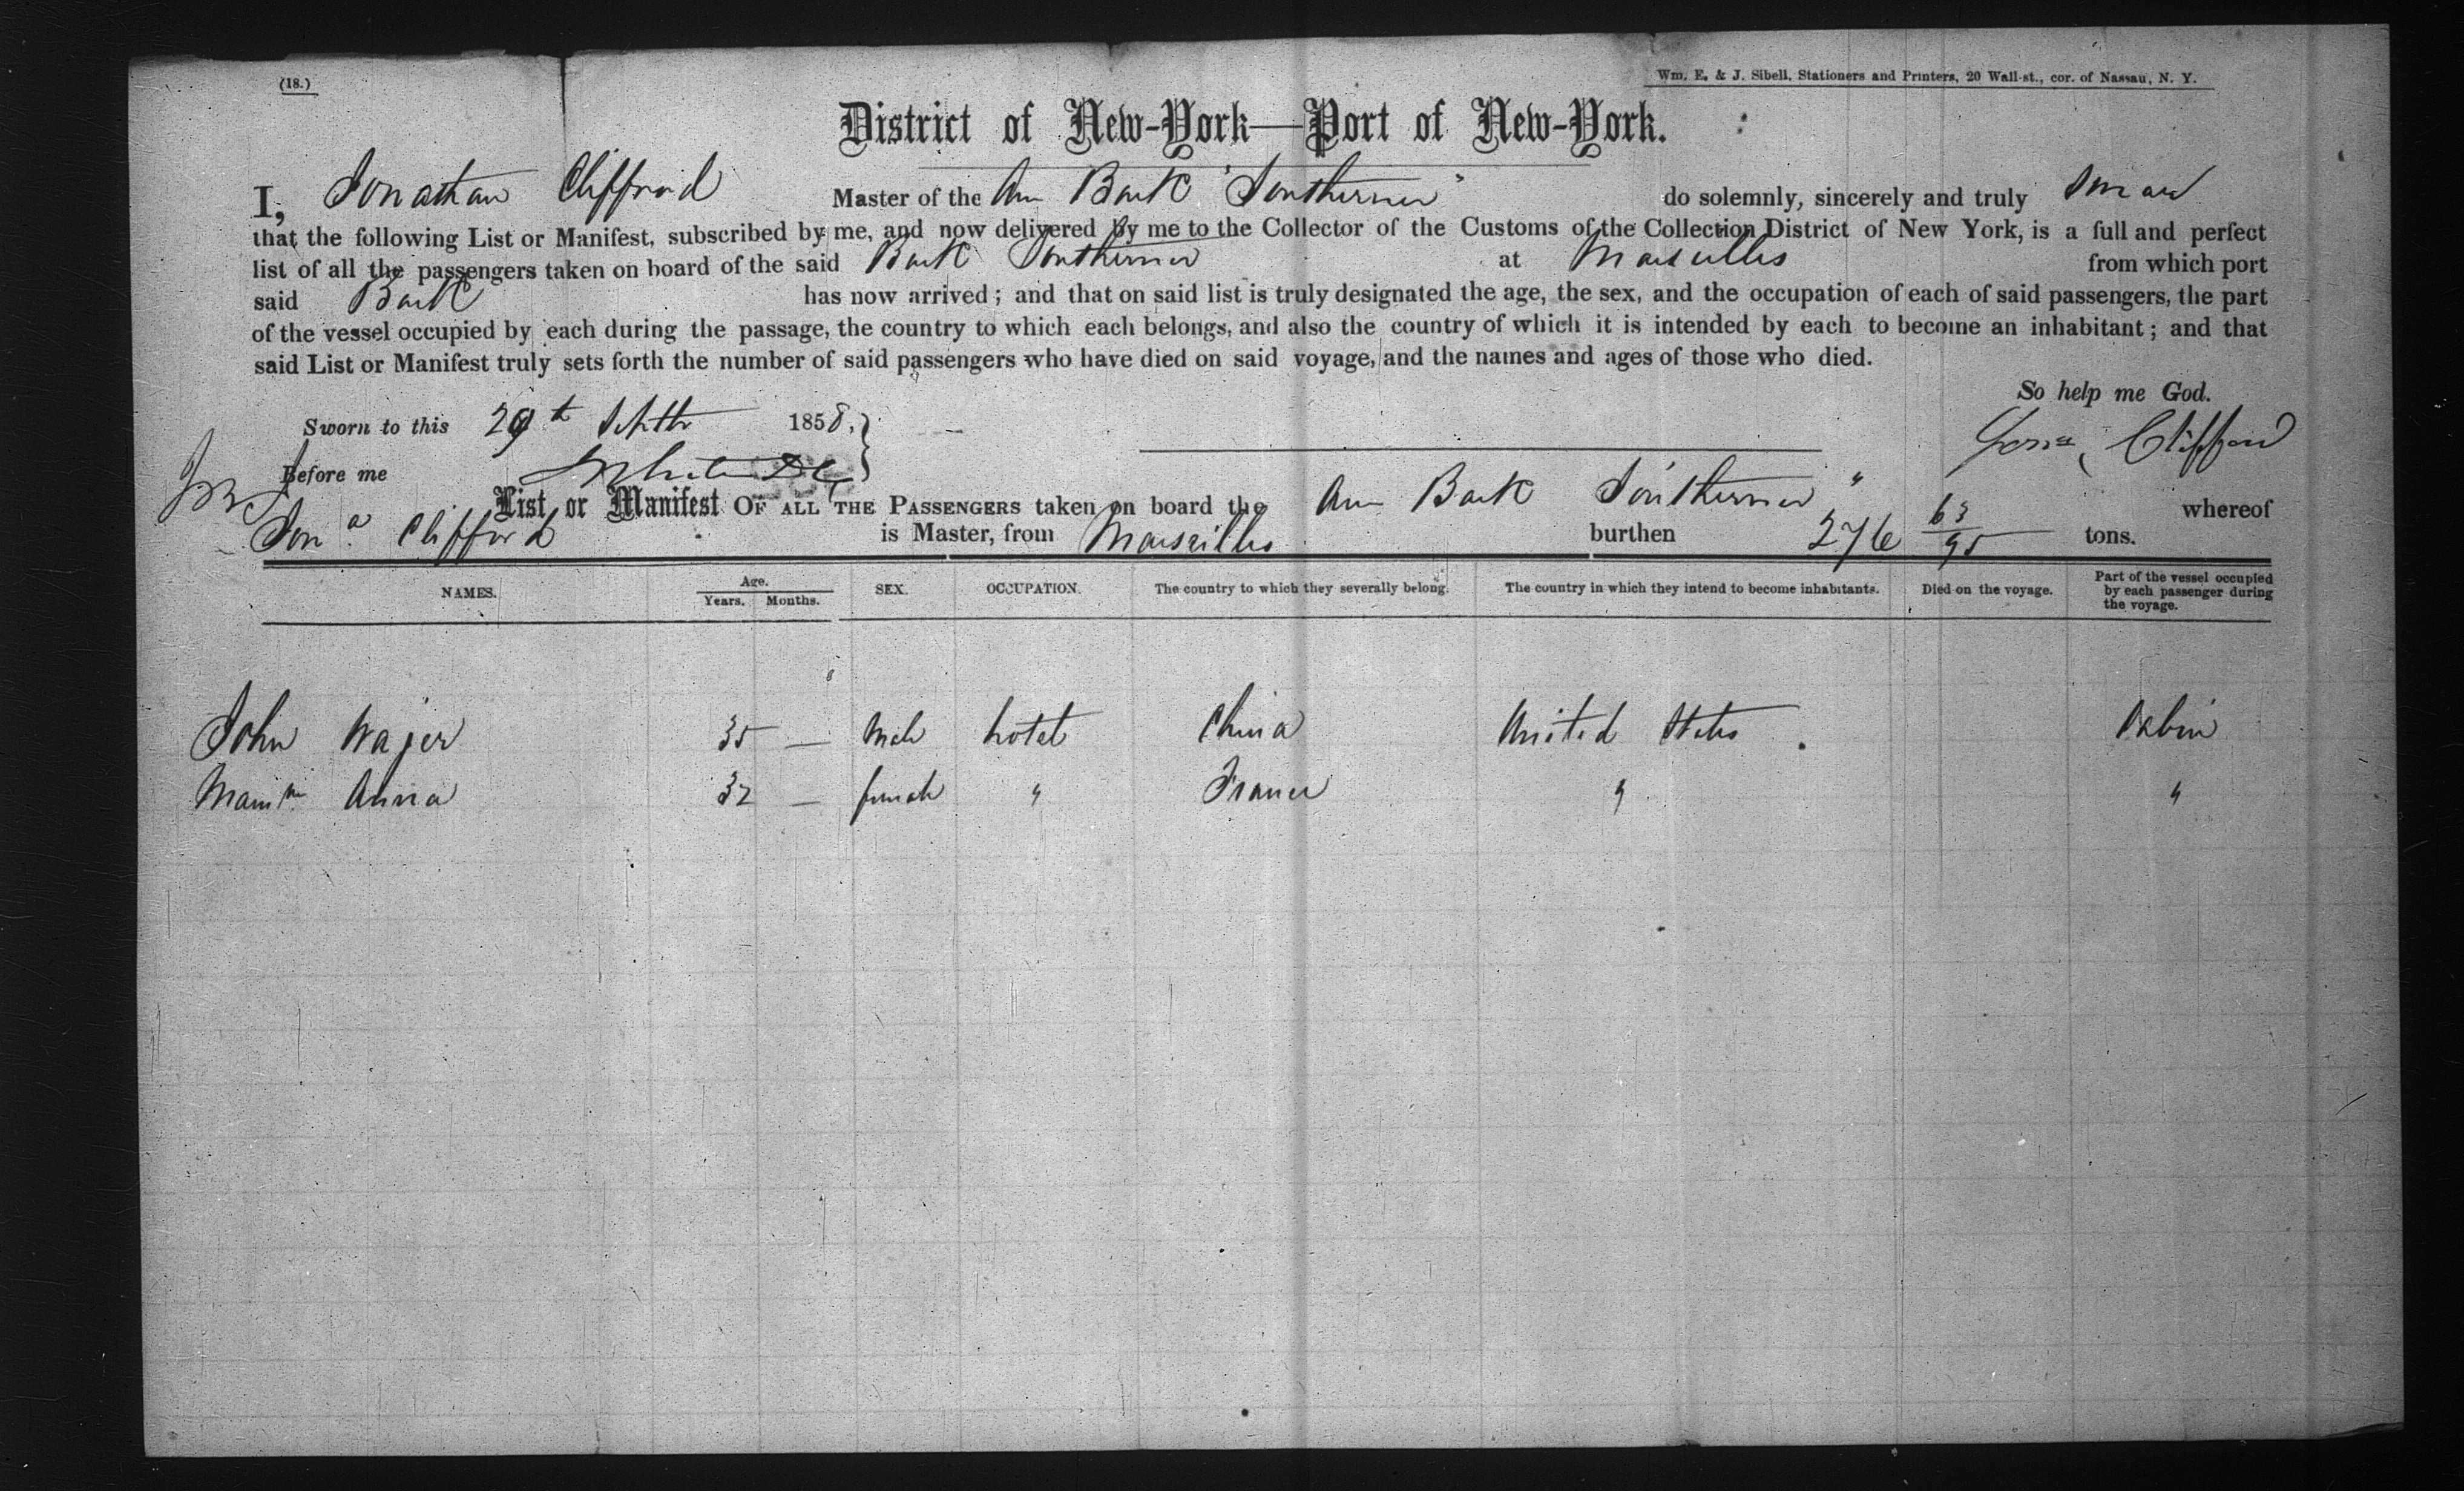 (18.)
Wm. E. & J. Sibell, Stationers and Printers, 20 Wall-st., cor. of Nassau, N. Y.
District of New-York—Port of New-York.
I, Jonathan Clifford Master of the Am Bark "Southerner" do solemnly, sincerely and truly swear
that the following List or Manifest, subscribed by me, and now delivered by me to the Collector of the Customs of the Collection District of New York, is a full and perfect
list of all the passengers taken on board of the said Bark Southerner at Marseilles from which port
said Bark has now arrived; and that on said list is truly designated the age, the sex, and the occupation of each of said passengers, the part
of the vessel occupied by each during the passage, the country to which each belongs, and also the country of which it is intended by each to become an inhabitant; and that
said List or Manifest truly sets forth the number of said passengers who have died on said voyage, and the names and ages of those who died.
So help me God.
Sworn to this 29th Septbr 1858, Jona Clifford
Before me
List or Manifest OF ALL THE PASSENGERS taken on board the Am Bark Southerner " whereof
Jona. Clifford is Master, from Marseilles burthen 276 63/95 tons.
NAMES. Age. Years. Months. SEX. OCCUPATION. The country to which they severally belong. The country in which they intend to become inhabitants. Died on the voyage. Part of the vessel occupied by each passenger during the voyage.
John Wajer 35 — Male hotel China United States . Cabin
Anna 32 — female " France " "